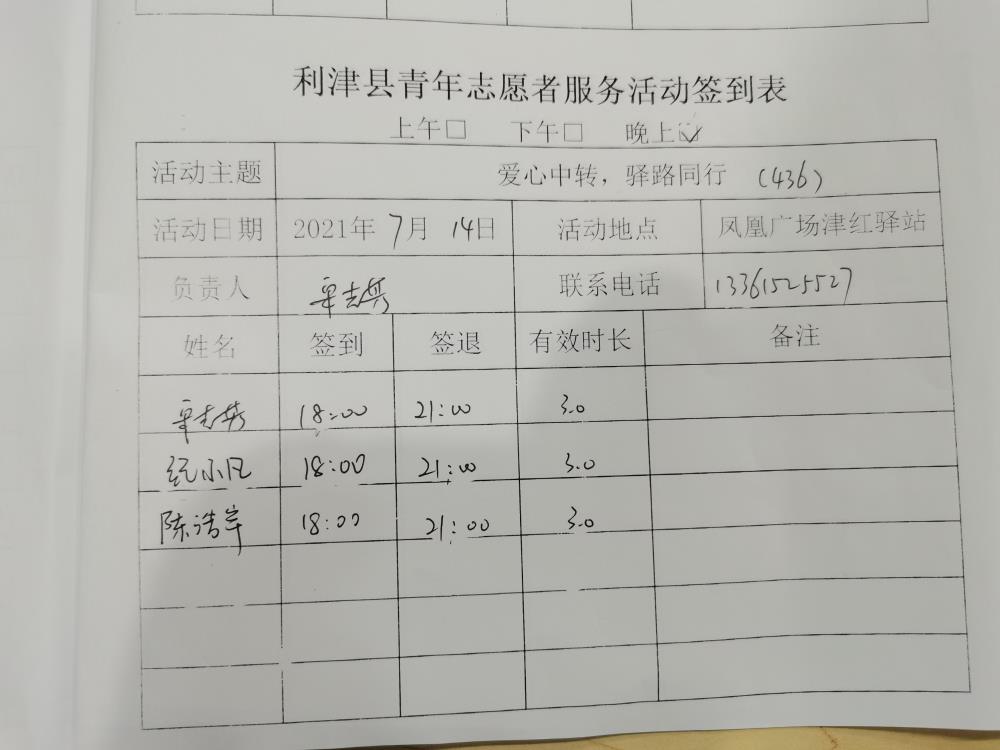 利津县青年志愿者服务活动签到表
上午□ 下午□ 晚上☑
活动主题 爱心中转，驿路同行 (436)
活动日期 2021年 7月 14日 活动地点 凤凰广场津红驿站
负责人 联系电话 13361525527
姓名 签到 签退 有效时长 备注
18:00 21:00 3.0
纪小凡 18:00 21:00 3.0
陈浩岸 18:00 21:00 3.0